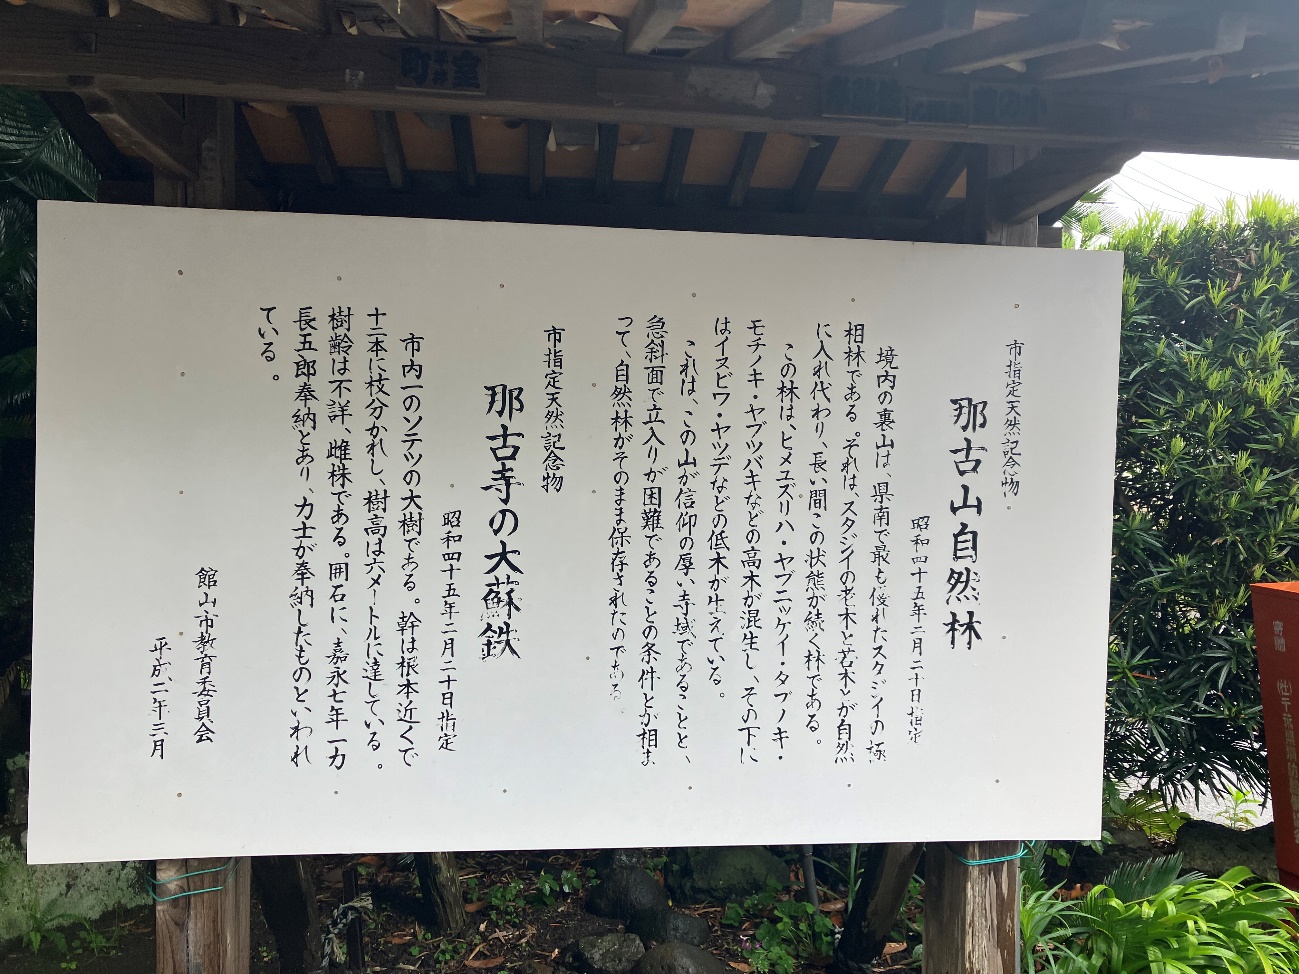 市指定天然記念物
那古山自然林
昭和四十五年二月二十日指定
境内の裏山は、県南で最も優れたスタジイの極
相林である。それは、スタジイの老木と若木とが自然
に入れ代わり、長い間この状態が続く林である。
この林は、ヒメユズリハ・ヤブニッケイ・タブノキ・
モチノキ・ヤブツバキなどの高木が混生し、その下に
はイヌビワ・ヤツデなどの低木が生えている。
これは、この山が信仰の厚い寺域であることと、
急斜面で立入りが困難であることの条件とが相ま
って、自然林がそのまま保存されたのである。
市指定天然記念物
那古寺の大蘇鉄
昭和四十五年二月二十日指定
市内一のソテツの大樹である。幹は根本近くで
十二本に枝分かれし、樹高は六メートルに達している。
樹齢は不詳、雌株である。囲石に、嘉永七年一力
長五郎奉納とあり、力士が奉納したものといわれ
ている。
館山市教育委員会
平成二年三月